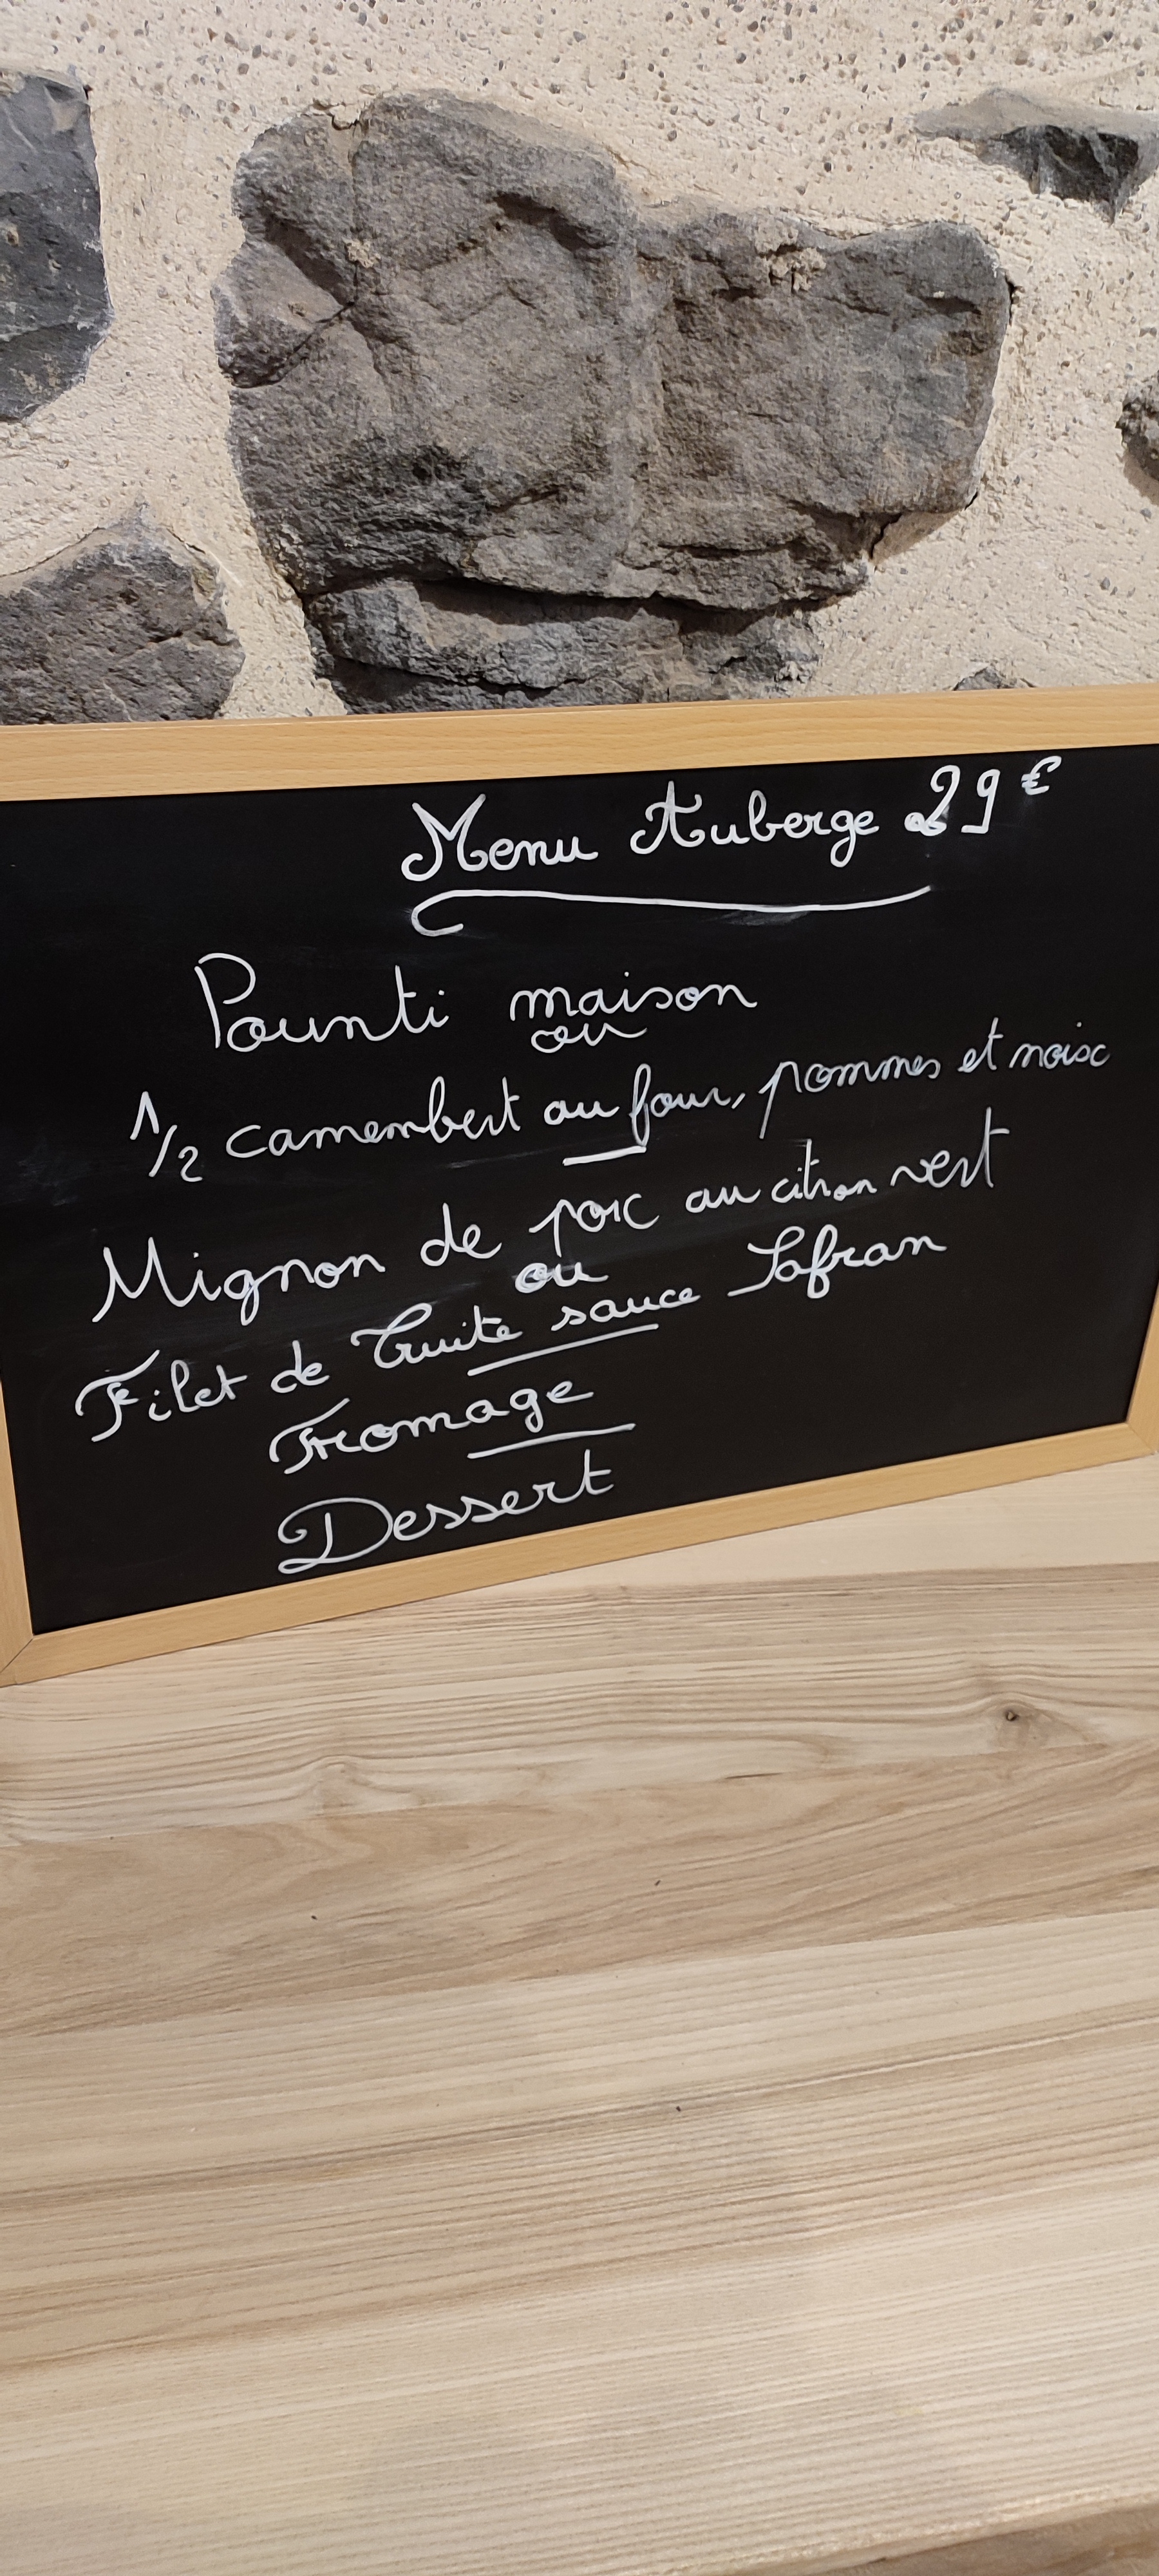 Menu Auberge 29€
Pounti maison
ou
1/2 camembert au four, pommes et noisc
Mignon de porc au citron vert
ou
Filet de Truite sauce Safran
Fromage
Dessert